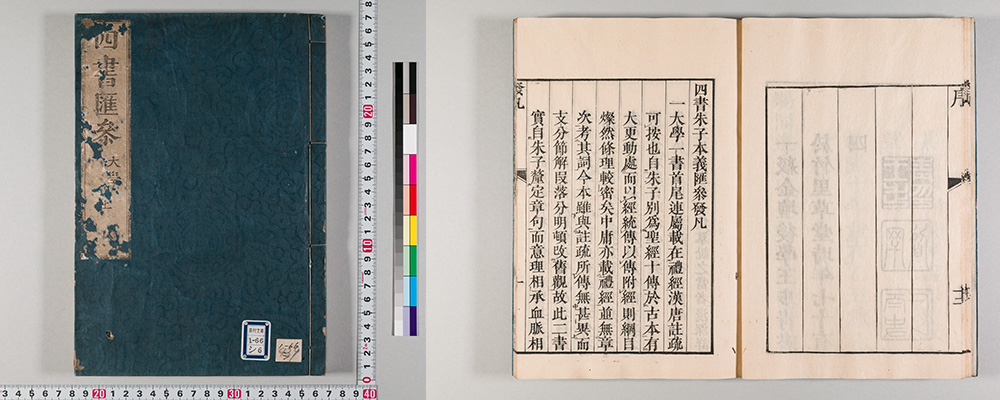 四書匯參 大學
1-66
シ6
四書朱子本義匯參發凡
一大學一書首尾連屬載在禮經漢唐註疏
可按也自朱子別爲聖經十傳於古本有
大更動處而以經統傳以傳附經則綱目
燦然條理較密矣中庸亦載禮經並無章
次考其詞今本雖與註疏所傳無甚異而
支分節解段落分明頓改舊觀故此二書
實自朱子釐定章句而意理相承血脈相
發凡
序